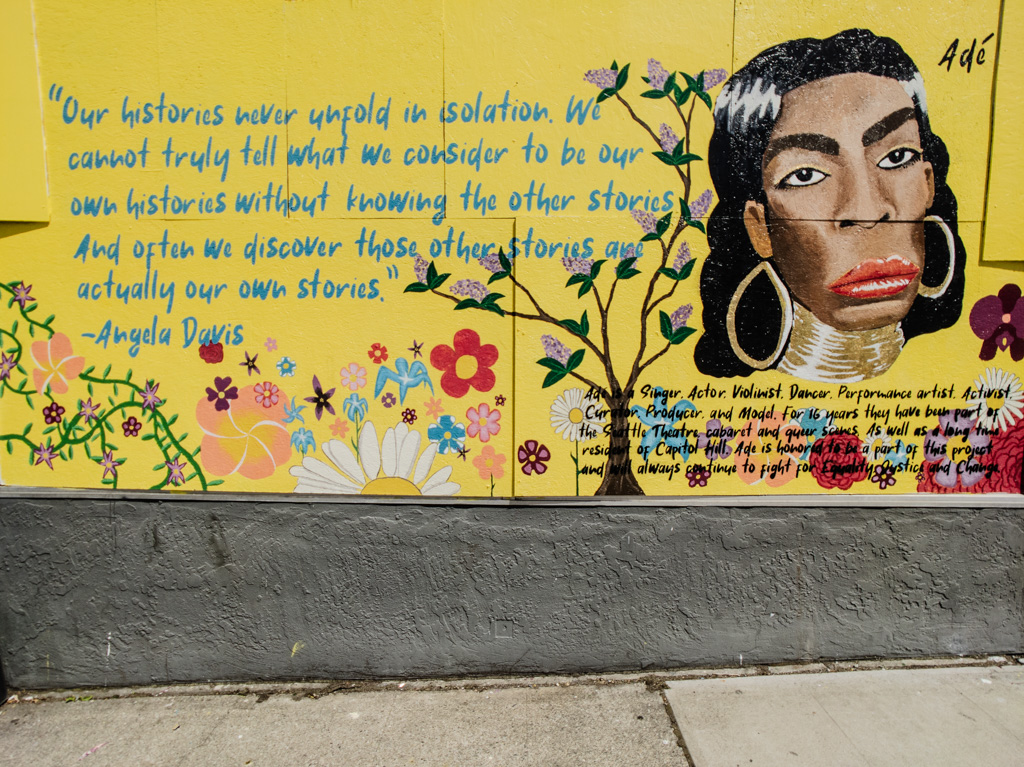 "Our histories never unfold in isolation. We
cannot truly tell what we consider to be our
own histories without knowing the other stories.
And often we discover those other stories are
actually our own stories."
-Angela Davis
Adé
Ade is a Singer. Actor. Violinist. Dancer. Performance artist. Activist.
Curator. Producer. and Model. For 16 years they have been part of
the Seattle Theatre, cabaret and queer scenes. As well as a long time
resident of Capitol Hill. Ade is honored to be a part of this project
and will always continue to fight for Equality, Justice and Change.